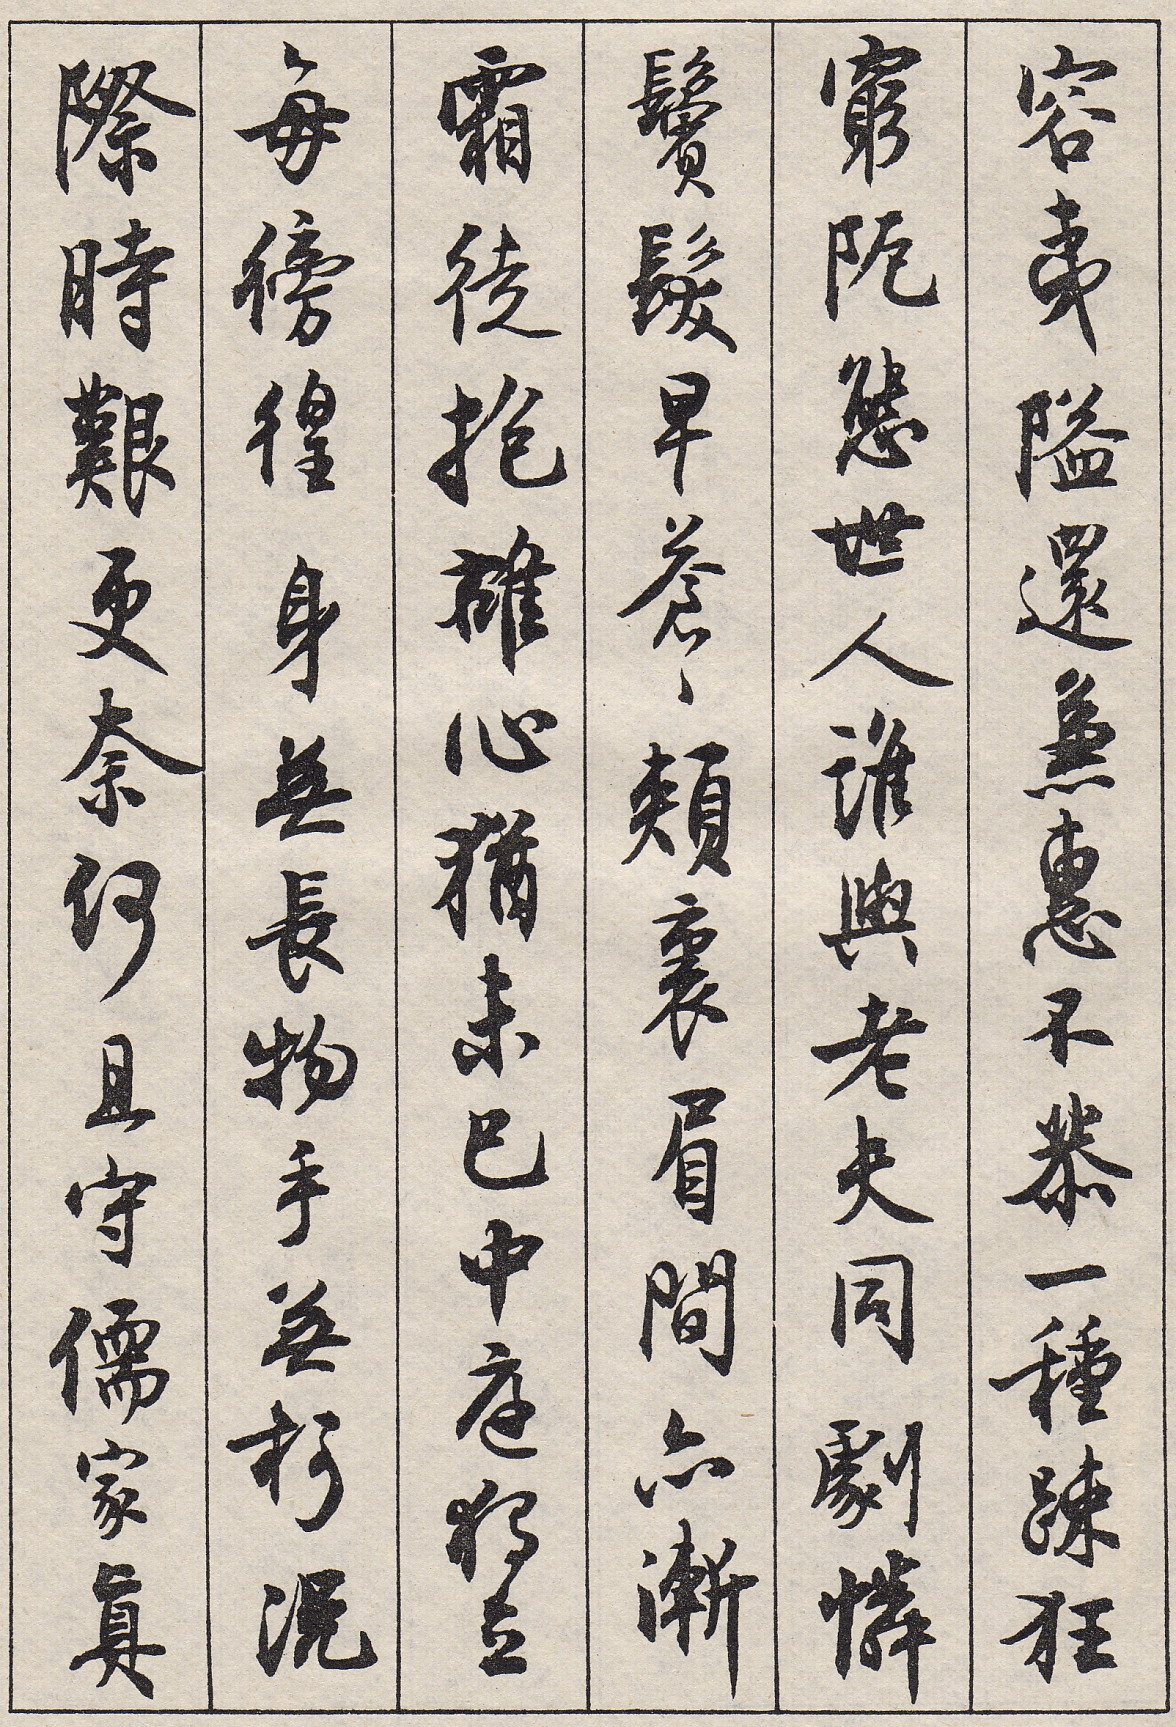 容夷隘還兼惠不恭一種踈狂
窮阨態世人誰與老夫同劇憐
鬢髮早蒼〻頰裏眉間亦漸
霜徒抱雄心猶未已中庭獨立
每徬徨身無長物手無柯況
際時艱更奈何且守儒家真